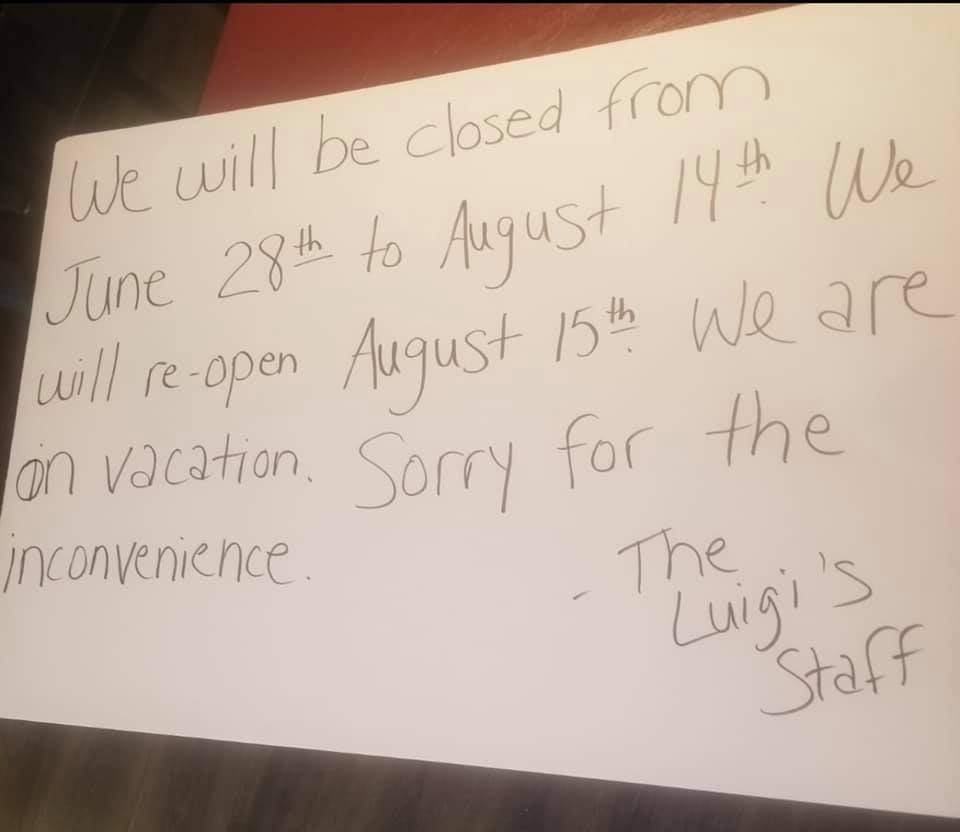 We will be closed from
June 28th to August 14th. We
will re-open August 15th. We are
on vacation. Sorry for the
inconvenience.
- The
Luigi's
Staff